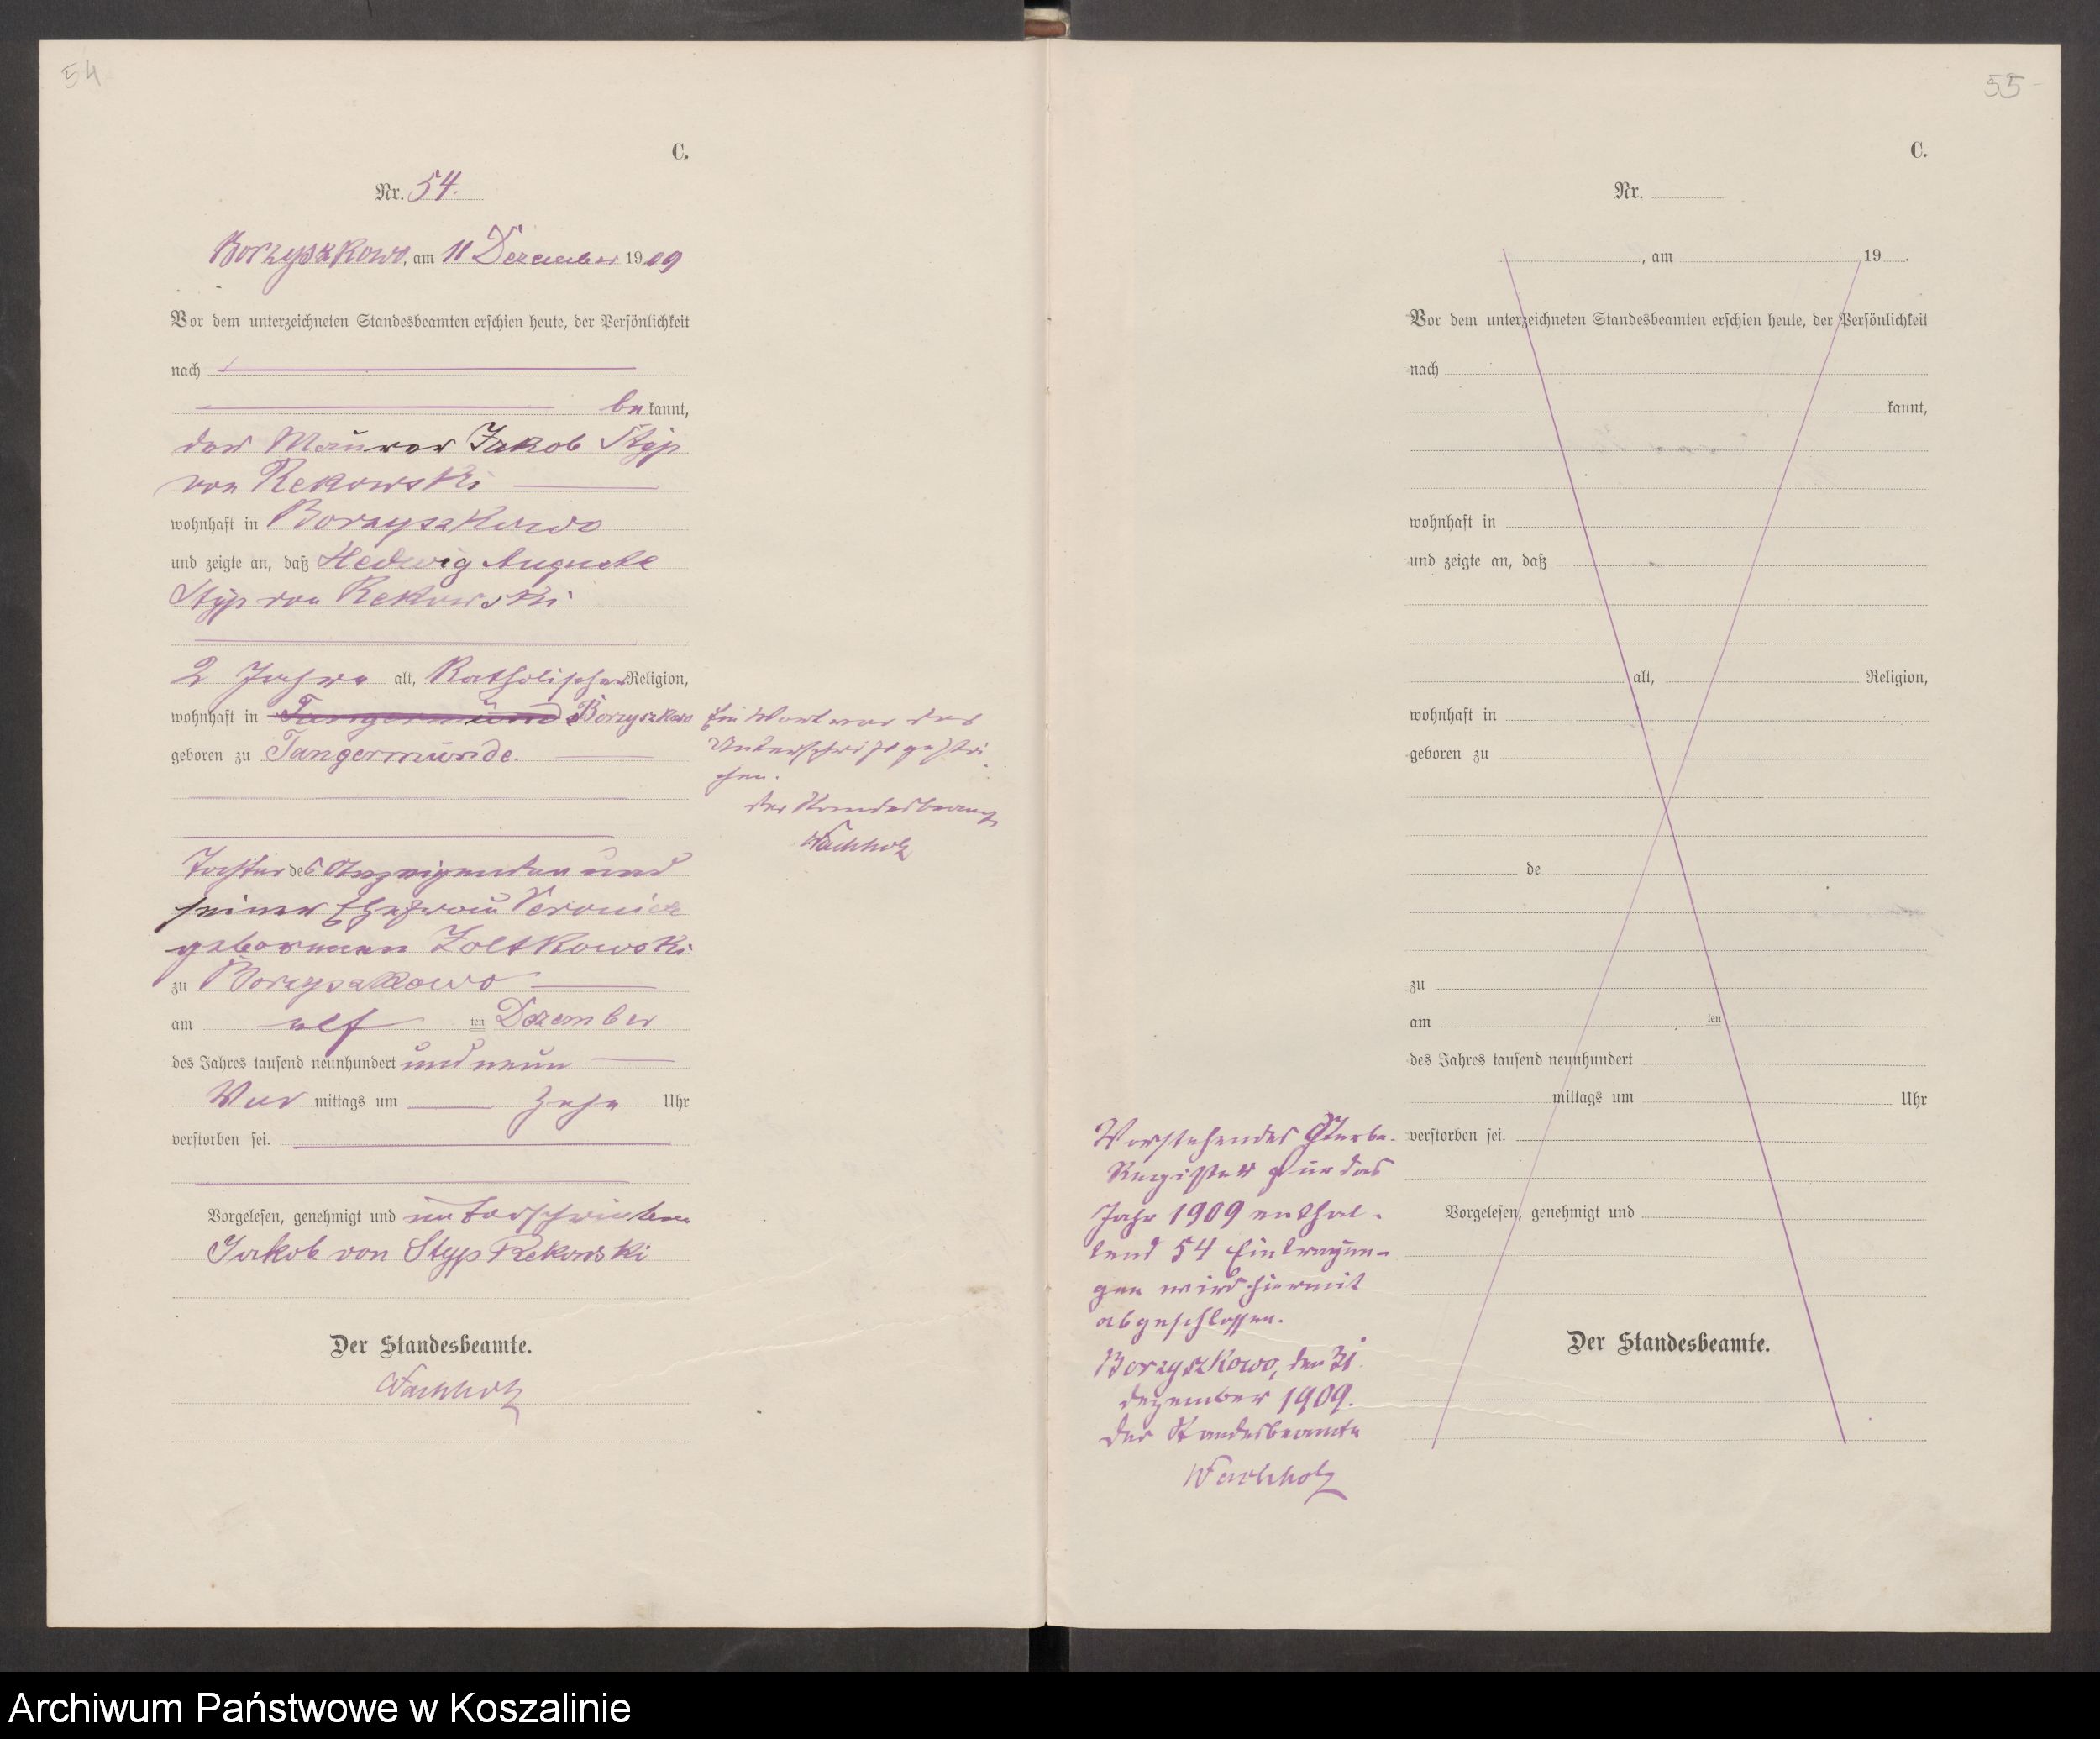 54
C.
Nr. 54.
Borzyszkowo, am 11 Dezember 1909
Vor dem unterzeichneten Standesbeamten erschien heute, der Persönlichkeit
nach
be kannt,
der Maurer Jakob Styp
von Rekowski
wohnhaft in Borzyszkowo
und zeigte an, daß Hedwig Auguste
Styp von Rekowski
2 Jahre alt, Katholischer Religion,
wohnhaft in Tangermünde Borzyszkowo
geboren zu Tangermünde.
Tochter des Anzeigenden und
seiner Ehefrau Veronica
geborenen Zoltkowski
zu Borzyszkowo
am elf ten Dezember
des Jahres tausend neunhundert und neun
Vor mittags um zehn Uhr
verstorben sei.
Vorgelesen, genehmigt und unterschrieben
Jakob von Styp Rekowski
Der Standesbeamte.
Wachholz
Ein Wort vor der
Unterschrift gestri-
chen.
Der Standesbeamte
Wachholz
55
C.
Nr.
, am 19 .
Vor dem unterzeichneten Standesbeamten erschien heute, der Persönlichkeit
nach
kannt,
wohnhaft in
und zeigte an, daß
alt, Religion,
wohnhaft in
geboren zu
de
zu
am ten
des Jahres tausend neunhundert
mittags um Uhr
verstorben sei.
Vorgelesen, genehmigt und
Der Standesbeamte.
Vorstehendes Sterbe-
Register für das
Jahr 1909 enthal-
tend 54 Eintragun-
gen wird hiermit
abgeschlossen.
Borzyszkowo, den 31.
Dezember 1909.
Der Standesbeamte
Wachholz
Archiwum Państwowe w Koszalinie